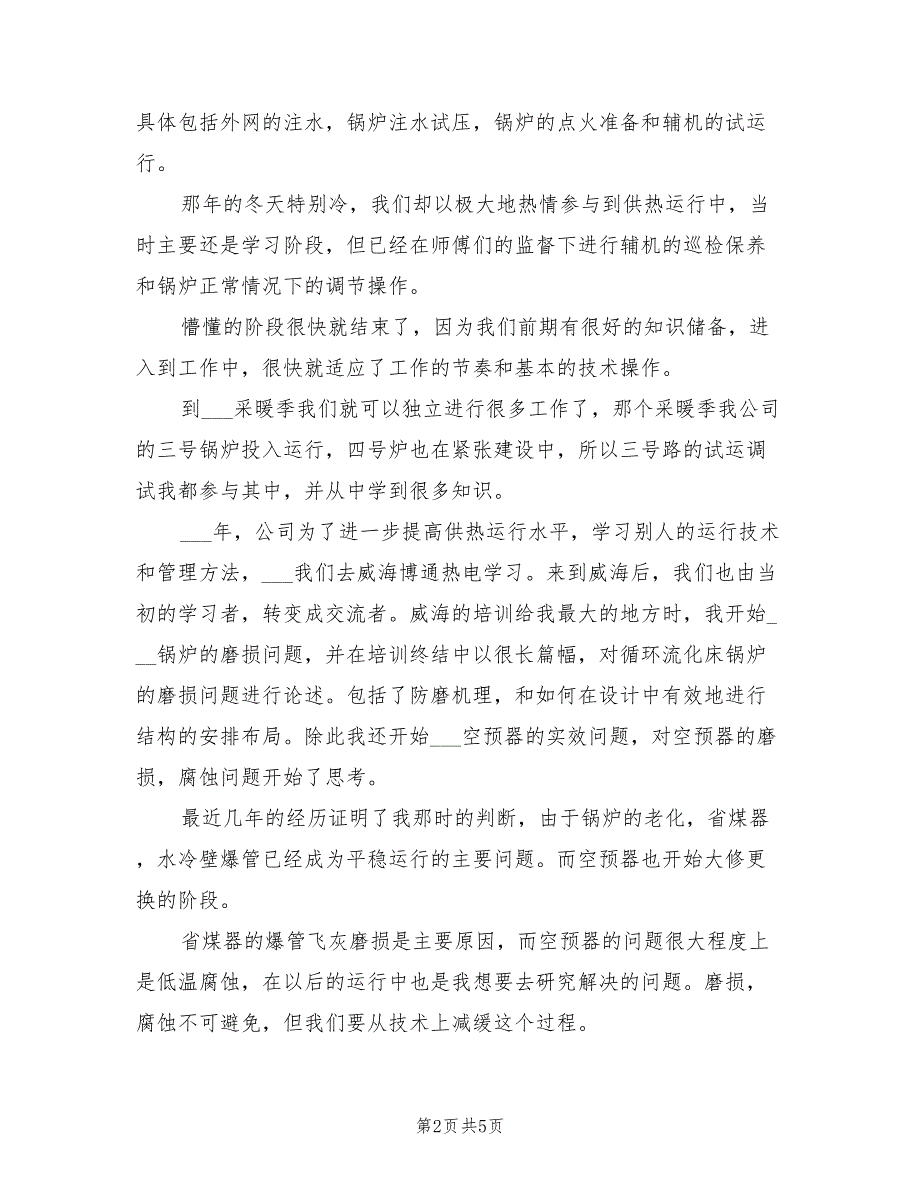 具体包括外网的注水，锅炉注水试压，锅炉的点火准备和辅机的试运
行。
那年的冬天特别冷，我们却以极大地热情参与到供热运行中，当
时主要还是学习阶段，但已经在师傅们的监督下进行辅机的巡检保养
和锅炉正常情况下的调节操作。
懵懂的阶段很快就结束了，因为我们前期有很好的知识储备，进
入到工作中，很快就适应了工作的节奏和基本的技术操作。
到___采暖季我们就可以独立进行很多工作了，那个采暖季我公司
的三号锅炉投入运行，四号炉也在紧张建设中，所以三号路的试运调
试我都参与其中，并从中学到很多知识。
___年，公司为了进一步提高供热运行水平，学习别人的运行技术
和管理方法，___我们去威海博通热电学习。来到威海后，我们也由当
初的学习者，转变成交流者。威海的培训给我最大的地方时，我开始_
__锅炉的磨损问题，并在培训终结中以很长篇幅，对循环流化床锅炉
的磨损问题进行论述。包括了防磨机理，和如何在设计中有效地进行
结构的安排布局。除此我还开始___空预器的实效问题，对空预器的磨
损，腐蚀问题开始了思考。
最近几年的经历证明了我那时的判断，由于锅炉的老化，省煤器
，水冷壁爆管已经成为平稳运行的主要问题。而空预器也开始大修更
换的阶段。
省煤器的爆管飞灰磨损是主要原因，而空预器的问题很大程度上
是低温腐蚀，在以后的运行中也是我想要去研究解决的问题。磨损，
腐蚀不可避免，但我们要从技术上减缓这个过程。
第2页共5页